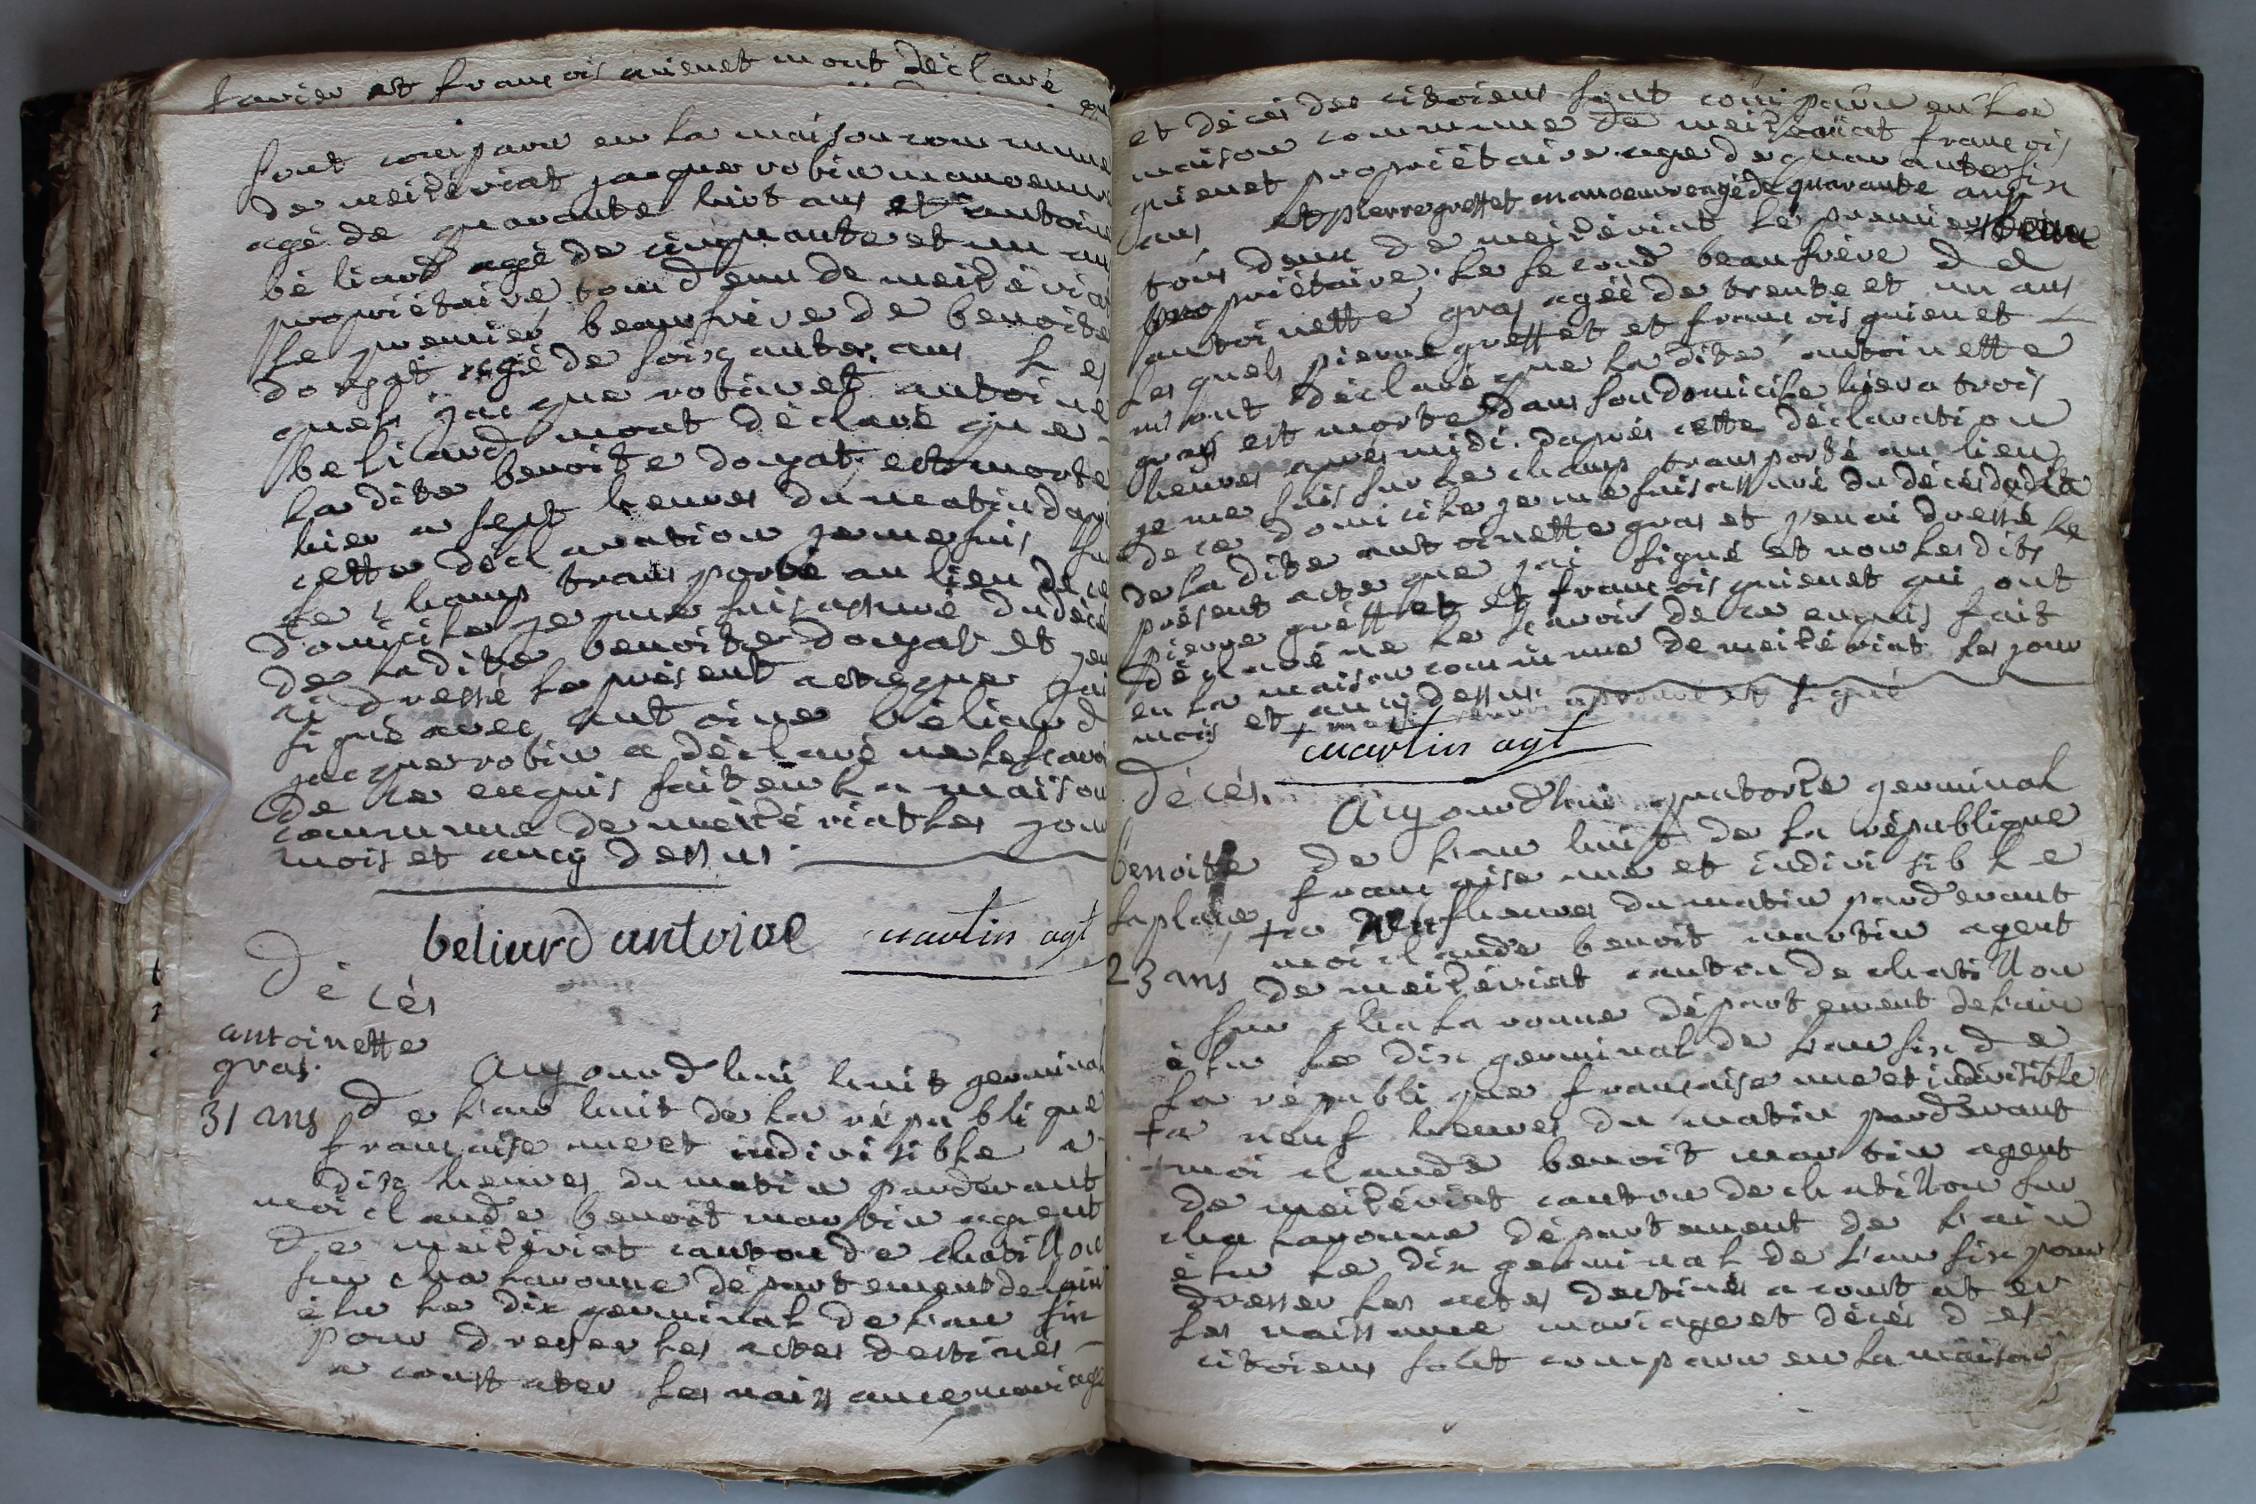 favier et francois quienet mont déclaré
sont comparu en la maison commune
de meizériat jacque robin manoeuvre
agé de quarante huit ans et antoine
béliard agé de cinquante et un an
propriétaire tous deux de meizériat
le premier beaufrère de benoite
douyat agé de soixante ans les
quels jacque robin et antoine
beliard mont déclaré que
la dite benoite douyat est morte
hier a sept heures du matin dapré
cette déclaration je me suis sur
le champ transporté au lieu de ce
domicile je me suis assuré du décé
de ladite benoite douyat et jen
ai dressé le présent acte que jai
signé avec antoine béliard
jacque robin a déclaré ne le scavoi
de ce enquis fait en la maison
commune de meizériat les jour
mois et an cy dessus.
beliard antoine martin agt
Décès
antoinette
gras.
31 ans
Aujourdhui huit germinal
de lan huit de la république
francaise une et indivisible a
dix heures du matin pardevant
moi claude benoit martin agent
de meizériat canton de chatillon
sur chalaronne département de lain
élu le dix germinal de lan six
pour dresser les actes destinés
a constater les naissance mariage
et décès des citoiens sont comparu en la
maison commune de meizériat francois
quienet propriétaire agé de quarante six
ans et pierre greffet manoeuvre agé de quarante ans
tous deux de meizériat le premier
propriétaire le second beaufrère de
antoinette gras agée de trente et un ans
les quels pierre greffet et francois quienet
mont déclaré que la dite antoinette
gras est morte dans son domicile hier a trois
heures aprés midi. daprés cette déclaration
je me suis sur le champ transporté au lieu
de ce domicile je me suis assuré du décés
de la dite antoinette gras et jen ai dressé le
présent acte que jai signé et non les dits
pierre greffet et francois quienet qui ont
déclaré ne le scavoir de ce enquis fait
en la maison commune de meizériat les jour
mois et an cy dessus.
martin agt
Décés.
benoite
laplace
23 ans
Aujourdhui quatorze germinal
de lan huit de la république
francaise une et indivisible
+a neuf heures du matin pardevant
moi claude benoit martin agent
de meizériat canton de chatillon
sur chalaronne département de lain
élu le dix germinal de lan six de
la république francaise une et indivisible
+a neuf heures du matin pardevant
+moi claude benoit martin agent
de meizériat canton de chatillon sur
chalaronne département de lain
élu le dix germinal de lan six pour
dresser les actes destinés a constater
les naissance mariage et décés des
citoiens sont comparu en la maison